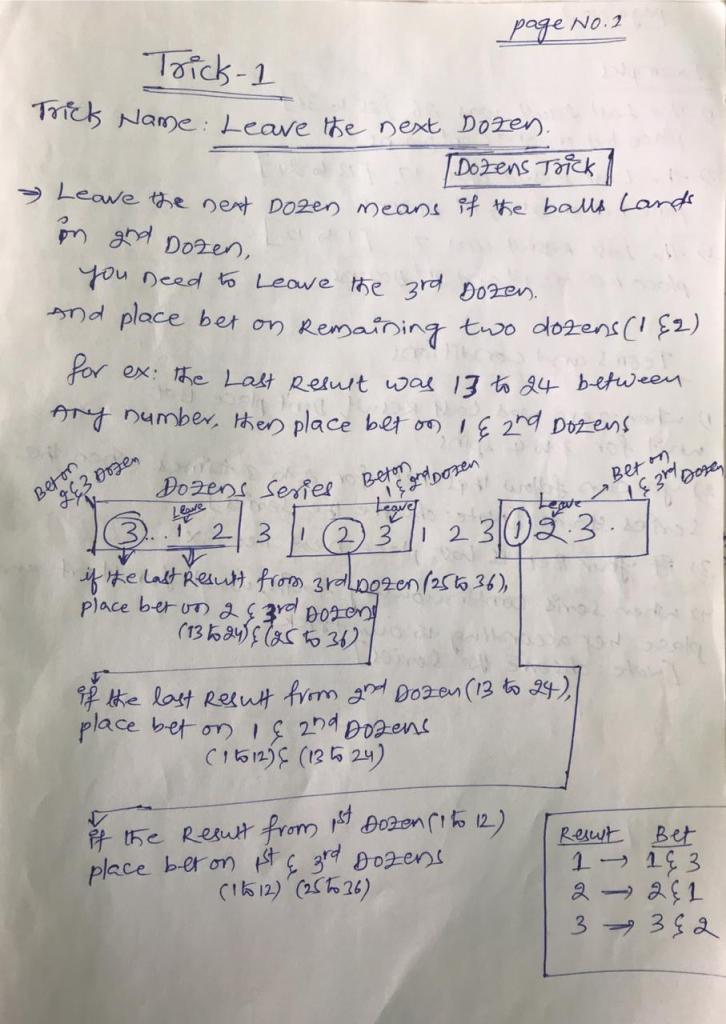 page No.1
Trick-1
Trick Name: Leave the next Dozen.
[Dozens Trick]
→ Leave the next Dozen means if the balls Lands
in 2nd Dozen,
you need to Leave the 3rd Dozen.
And place bet on Remaining two dozens (1 & 2)
for ex: the Last Result was 13 to 24 between
Any number, then place bet on 1 & 2nd Dozens
Bet on 2 & 3 Dozen
Dozens Series
Bet on 1 & 2nd Dozen
Bet on 1 & 3rd Dozen
Leave Leave Leave
3.. 1 2 3 1 2 3 1 2 3 1 2.3.
if the last Result from 3rd Dozen (25 to 36),
place bet on 2 & 3rd Dozens
(13 to 24) & (25 to 36)
if the last Result from 2nd Dozen (13 to 24),
place bet on 1 & 2nd Dozens
(1 to 12) & (13 to 24)
if the Result from 1st Dozen (1 to 12)
place bet on 1st & 3rd Dozens
(1 to 12) (25 to 36)
Result Bet
1 → 1 & 3
2 → 2 & 1
3 → 3 & 2